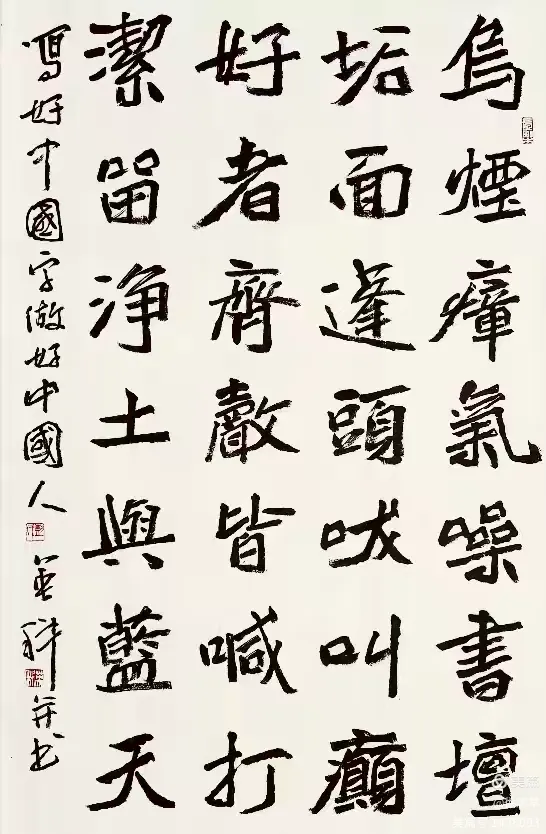 烏煙瘴氣噪書壇
垢面逢頭吠叫癲
好者齊皆喊打
潔留淨土與藍天
寫好中國字做好中國人 科并书